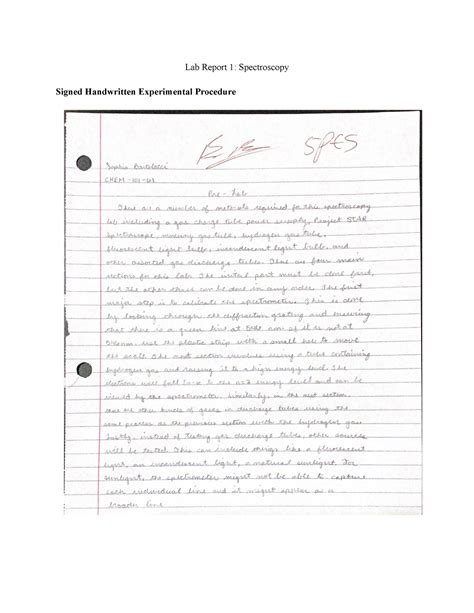 Lab Report 1: Spectroscopy
Signed Handwritten Experimental Procedure
SPES
Sophia
CHEM
Pre-Lab
There are a number of materials required for this spectroscopy
lab including a gas charge tube power supply, Project STAR
spectroscope, mercury gas tube, hydrogen gas tube,
fluorescent light bulb, incandescent light bulb, and
other assorted gas discharge tubes. There are four main
sections for this lab. The initial part must be done first,
but the other three can be done in any order. The first
major step is to calibrate the spectrometer. This is done
by looking through the diffraction grating and ensuring
that there is a green line at 546 nm. If it is not at
546nm, use the plastic strip with a small hole to move
the scale. The next section involves using a tube containing
hydrogen gas and raising it to a high energy level. The
electrons will fall to the n=2 energy level and can be
viewed by the spectrometer. Similarly, in the next section,
one other kinds of gases in discharge tubes using the
same process as the previous section with the hydrogen gas.
Lastly, instead of testing gas discharge tubes, other sources
will be tested. This can include things like a fluorescent
light, an incandescent light, a natural sunlight. For
sunlight, the spectrometer might not be able to capture
each individual line and it might appear as a
broader line